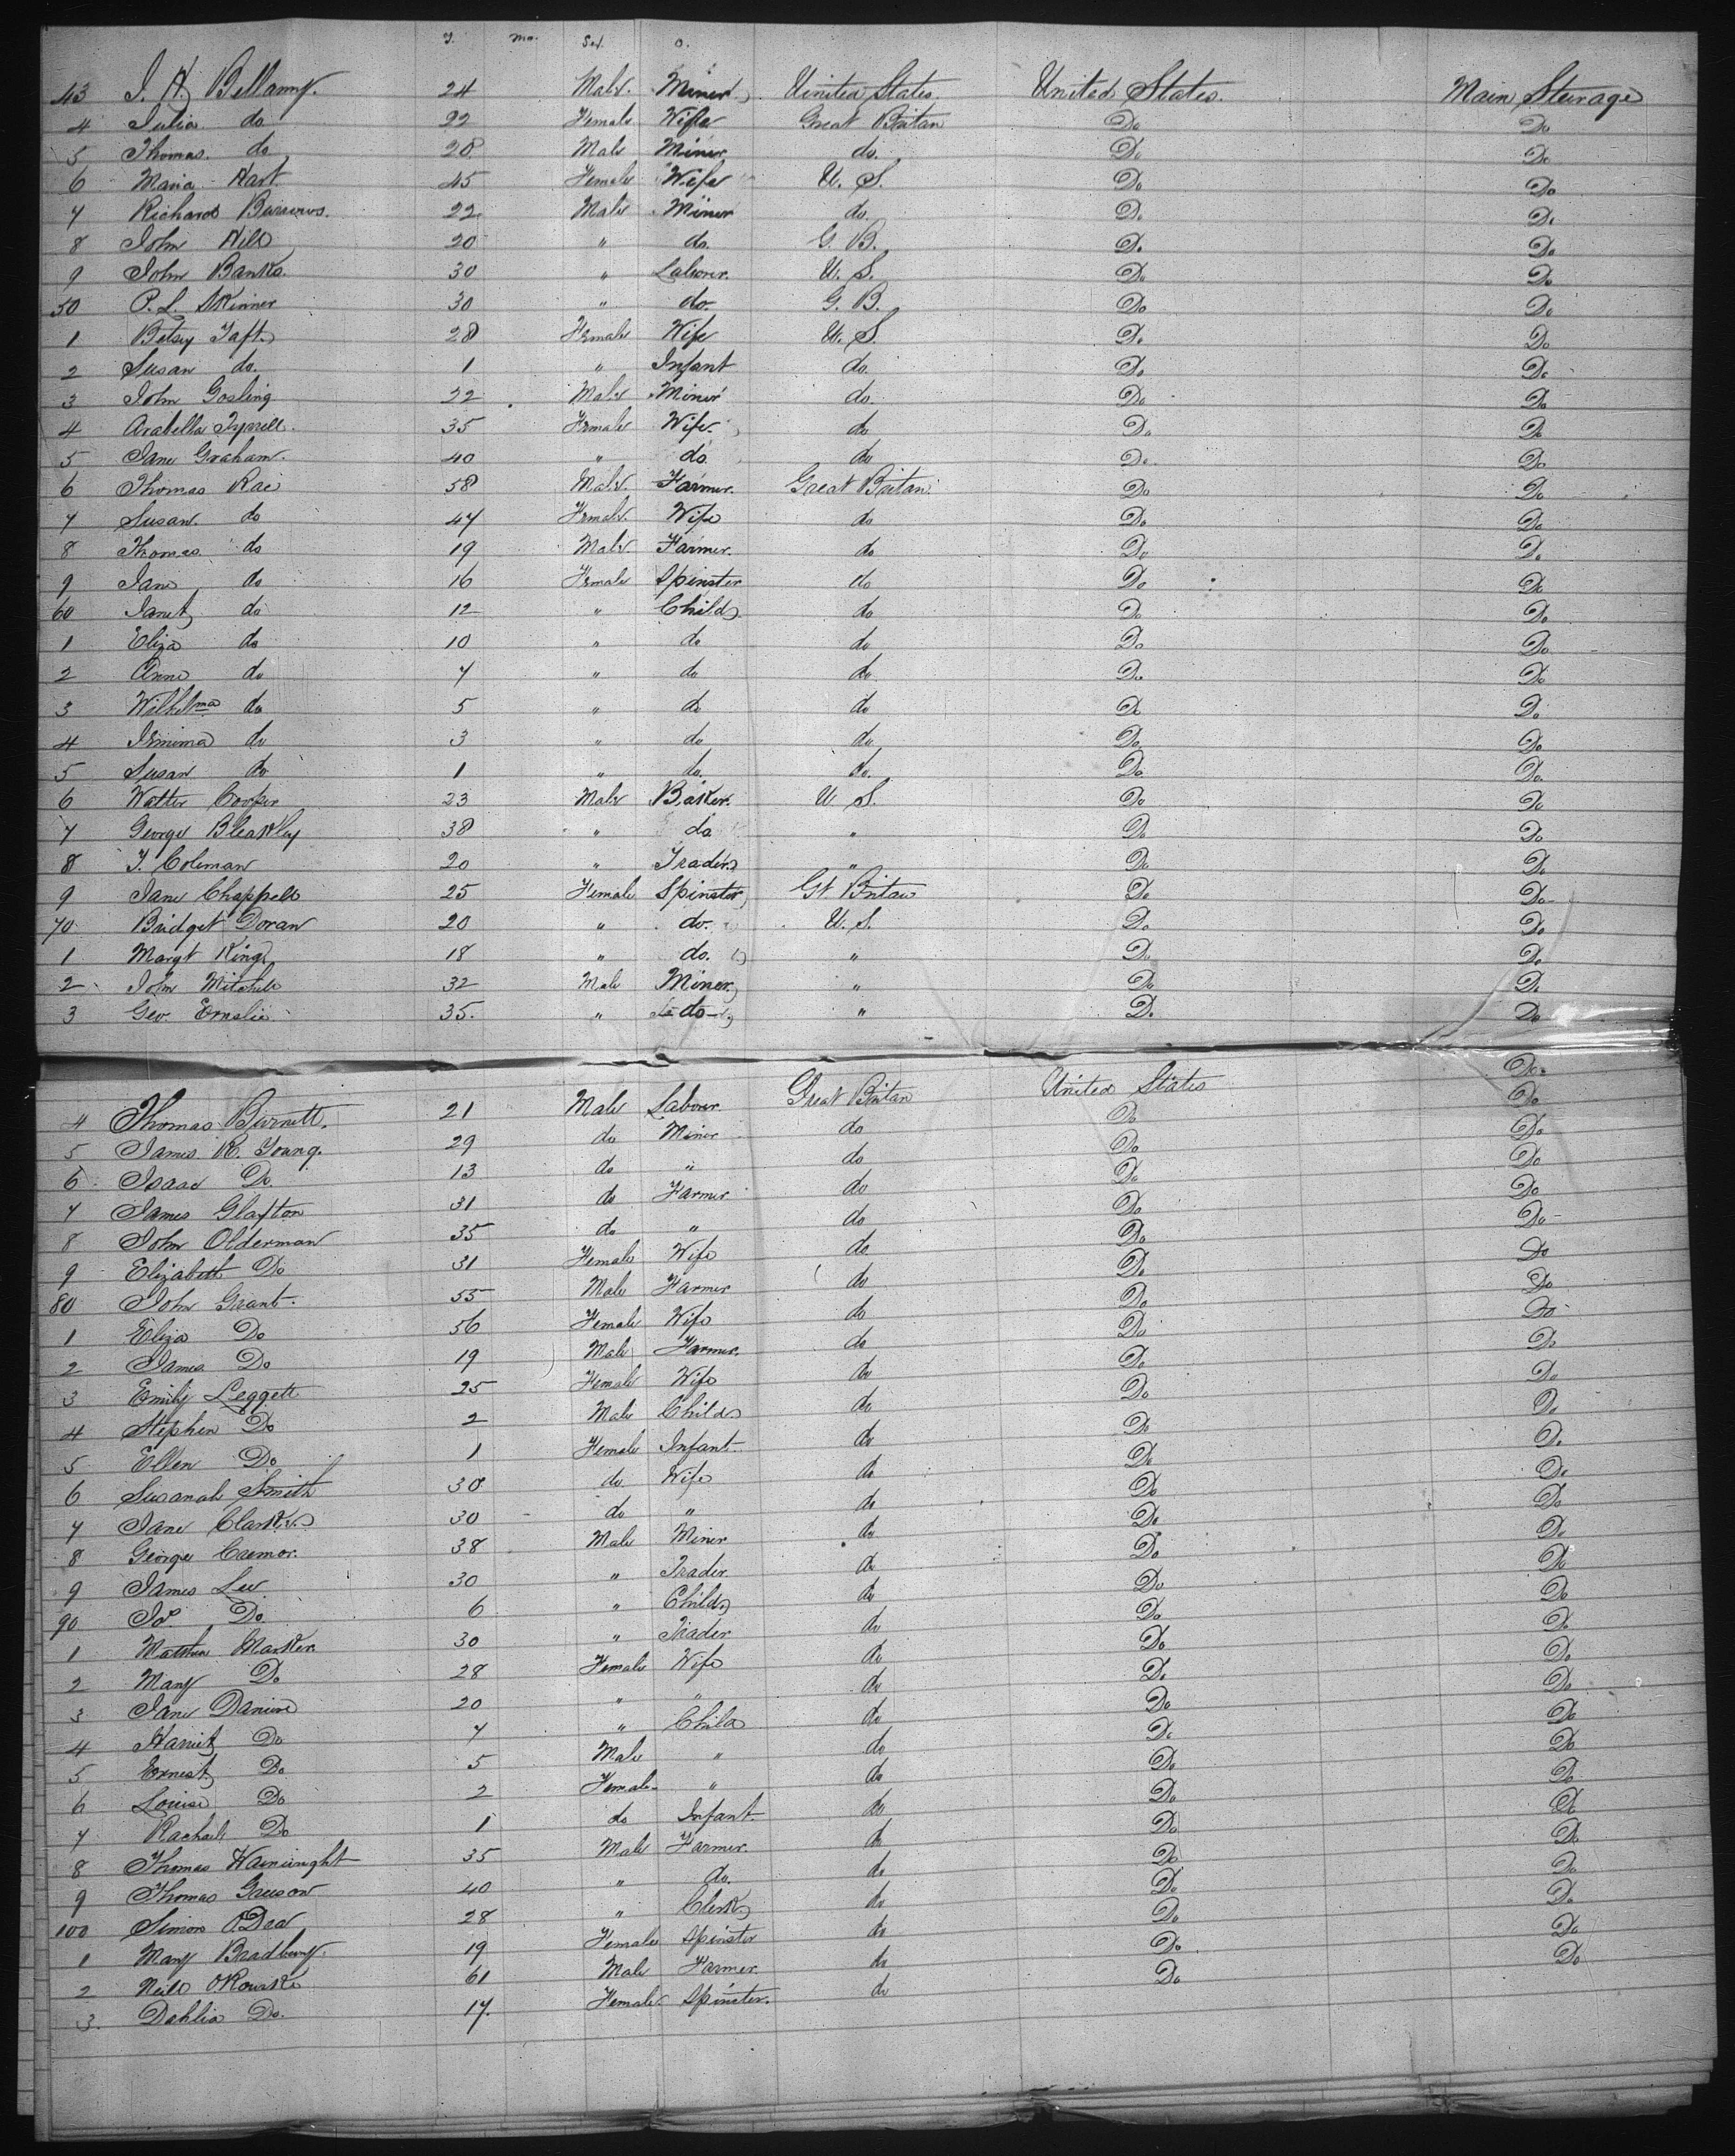 Y. Mo. Sex. O.
43 J. H. Bellamy. 24 Male. Miner United States. United States. Main Steerage
4 Julia do 22 Female Wife Great Britan Do Do
5 Thomas. do 28 Male Miner do. Do Do
6 Maria Hart. 45 Female Wife U. S. Do Do
7 Richard Burrows. 22 Male Miner do. Do Do
8 John Hill 20 " do. G. B. Do Do
9 John Banks. 30 " Laborer. U. S. Do Do
50 P. L. Skinner 30 " do. G. B. Do Do
1 Betsy Taft 28 Female Wife U. S. Do Do
2 Susan do. 1 " Infant do. Do Do
3 John Gosling 22 Male Miner do. Do Do
4 Arabella Tyrrell. 35 Female Wife do Do Do
5 Jane Graham. 40 " do. do Do Do
6 Thomas Rae 58 Male. Farmer. Great Britan. Do Do
7 Susan. do 47 Female. Wife do Do Do
8 Thomas do 19 Male. Farmer. do Do Do
9 Jane do 16 Female Spinster do Do Do
60 Janet do 12 " Child do Do Do
1 Eliza do 10 " do do Do Do
2 Anne do 7 " do do Do Do
3 Wilhelma do 5 " do do Do Do
4 Jemima do 3 " do do Do Do
5 Susan do 1 " do. do. Do Do
6 Walter Cooper 23 Male Baker. U. S. Do Do
7 George Bleakley 38 " do " Do Do
8 T. Coleman 20 " Trader " Do Do
9 Jane Chappell 25 Female Spinster Gt Britain Do Do
70 Bridget Doran 20 " do. U. S. Do Do
1 Margt King 18 " do. " Do Do
2 John Mitchell 32 Male Miner " Do Do
3 Geo. Emslie 35. " do " Do Do
Do
4 Thomas Burnett. 21 Male Laborer. Great Britan United States Do
5 James R. Young. 29 do Miner do Do Do
6 Isaac Do 13 do " do Do Do
7 James Glafton 31 do Farmer do Do Do
8 John Olderman 35 do " do Do Do
9 Elizabeth Do 31 Female Wife do Do Do
80 John Grant. 55 Male Farmer do Do Do
1 Eliza Do 56 Female Wife do Do Do
2 James Do 19 Male Farmer. do Do Do
3 Emily Leggett 25 Female Wife do Do Do
4 Stephen Do 2 Male Child do Do Do
5 Ellen Do 1 Female Infant do Do Do
6 Susanah Smith 30 do Wife do Do Do
7 Jane Clarke 30 do " do Do Do
8 George Cremor. 38 Male Miner do Do Do
9 James Lee 30 " Trader. do Do Do
90 Jas. Do 6 " Child do Do Do
1 Matthew Marker. 30 " Trader do Do Do
2 Mary Do 28 Female Wife do Do Do
3 Jane 20 " " do Do Do
4 Harriet Do 7 " Child do Do Do
5 Ernest Do 5 Male " do Do Do
6 Louisa Do 2 Female " do Do Do
7 Rachael Do 1 do Infant do Do Do
8 Thomas Wainwright 35 Male Farmer. do Do Do
9 Thomas Greeson 40 " do. do Do Do
100 Simon O'Dea 28 " Clerk do Do Do
1 Mary Bradbury. 19 Female Spinster do Do Do
2 Neill O'Rourke 61 Male Farmer do Do Do
3. Dahlia Do. 17. Female. Spinster. do Do